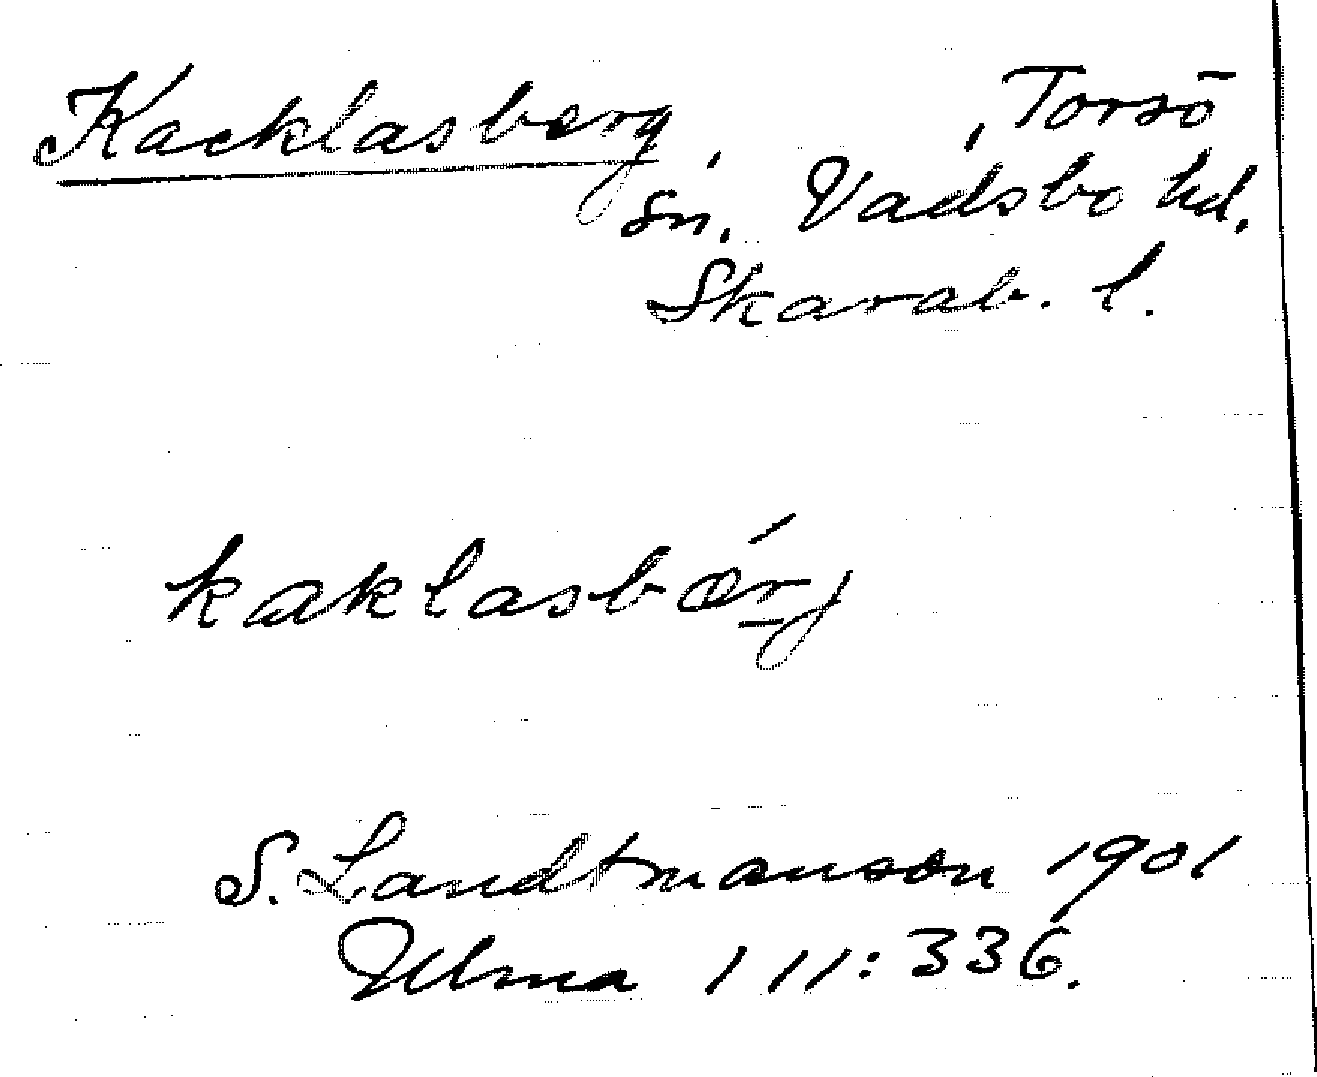 Kacklasberg, , Torsö
sn. Vadsbo hd.
Skarab. l.
kaklasbærj
S. Landtmanson 1901
Ulma 111:336.